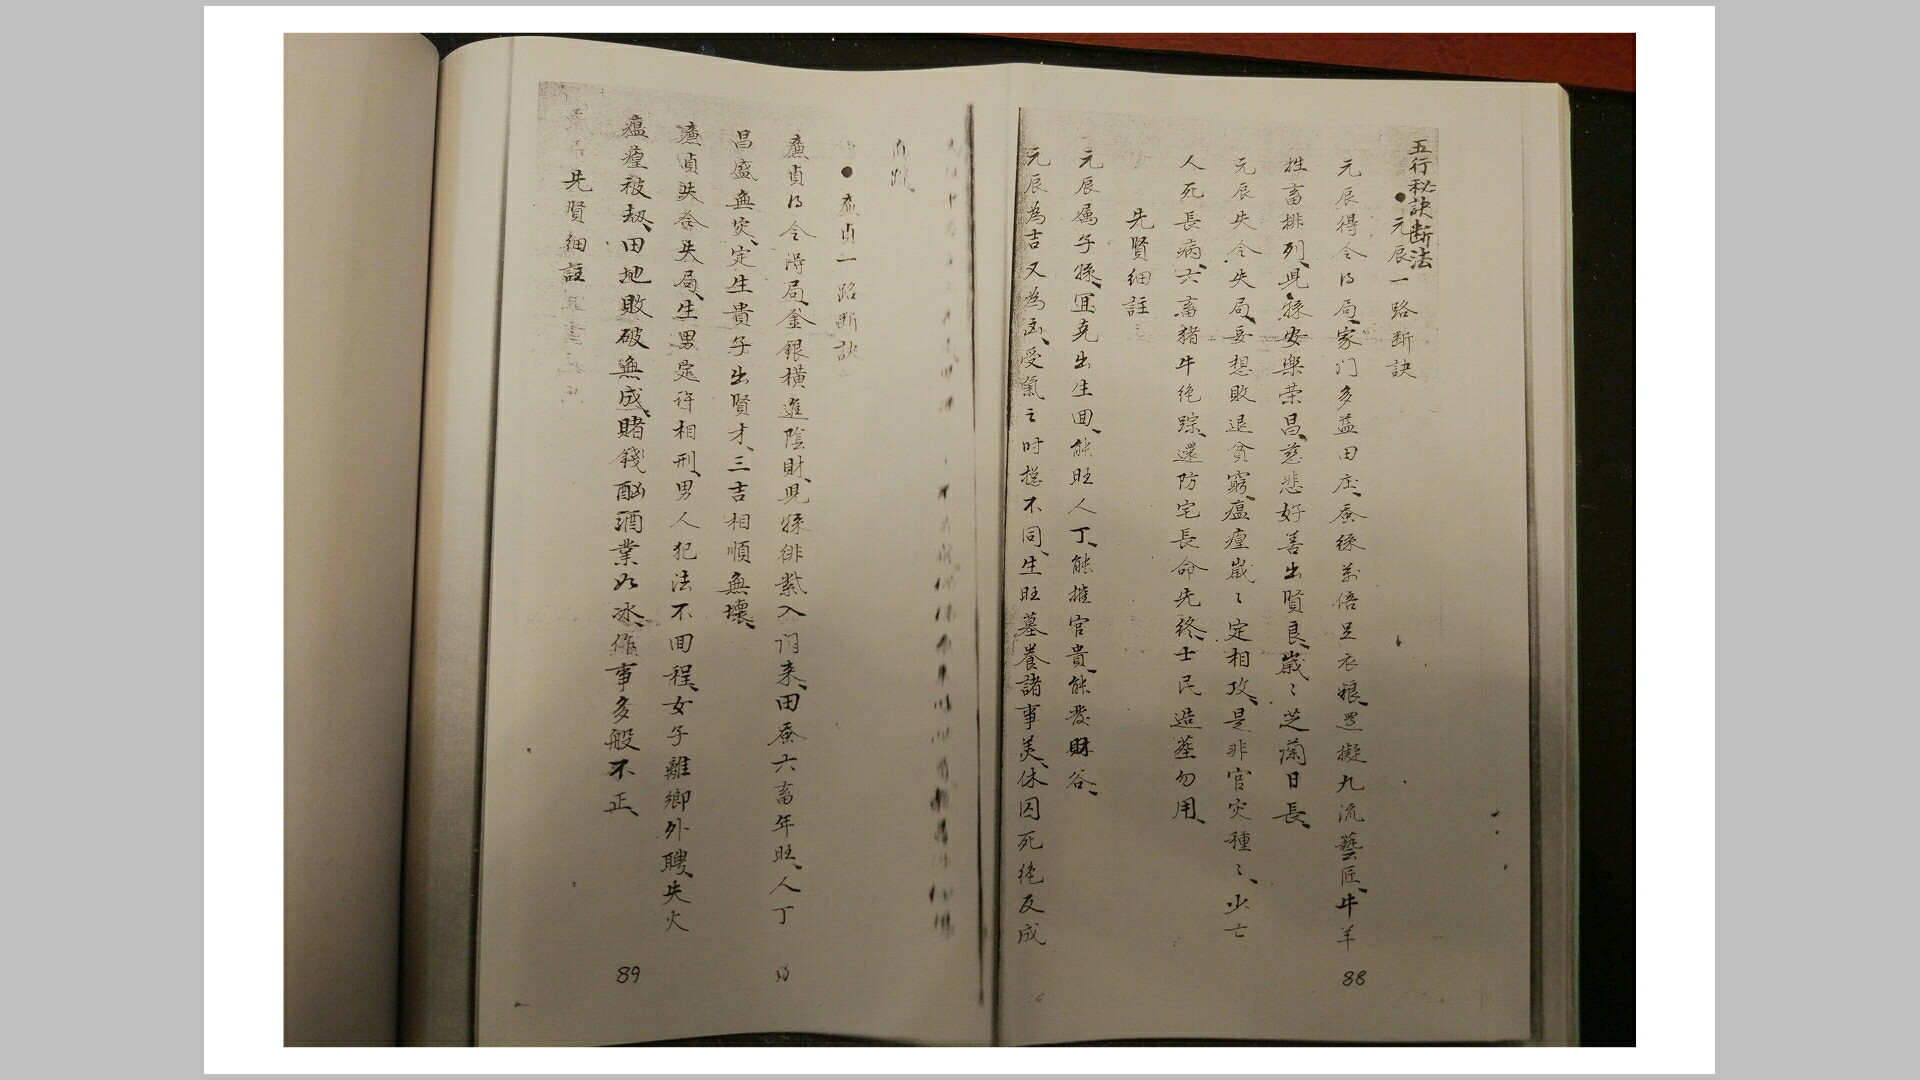 五行秘訣断法
●元辰一路断訣
元辰得令得局、家门多益田庄、蚕絲萬倍足衣粮、置擬九流藝匠、牛羊
牲畜排列、児孫安樂荣昌、慈悲好善出賢良、歳〻芝蘭日長、
元辰失令失局、妄想敗退貧窮、瘟瘟歳〻定相攻、是非官灾種〻、少亡
人死長病、六畜猪牛绝踪、還防宅長命先終、士民造塟勿用、
先賢細註
元辰属子孫、冝尭出生囬、能旺人丁、能擢官貴、能發財谷、
元辰為吉又為凶、受氣之时揔不同、生旺墓養諸事美、休囚死绝反成
●廉貞一路断訣
廉貞得令得局、金銀横進陰財、児孫徘紫入门来、田蚕六畜年旺、人丁
昌盛無灾、定生貴子出賢才、三吉相順無壊、
廉貞失令失局、生男定许相刑、男人犯法不囬程、女子離鄉外聘、失火
瘟瘟被刼、田地敗破無成、賭錢酗酒業如冰、作事多般不正、
先賢細註
89
88